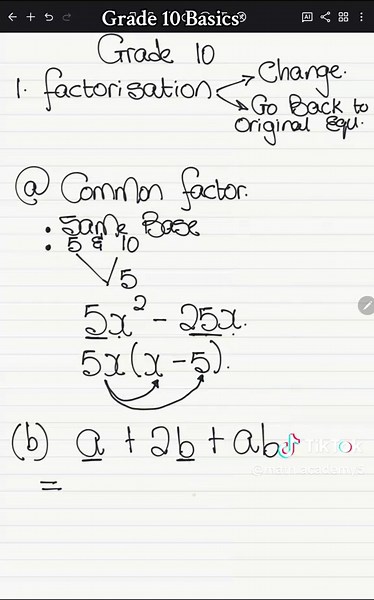 Grade 10 Basics
AI
Grade 10
1. factorisation
Change.
Go Back to
Original Equ.
(a) Common factor.
• Same Base
• 5 & 10
5
5x² - 25x.
5x(x - 5).
(b) a + 2b + ab
TikTok
=